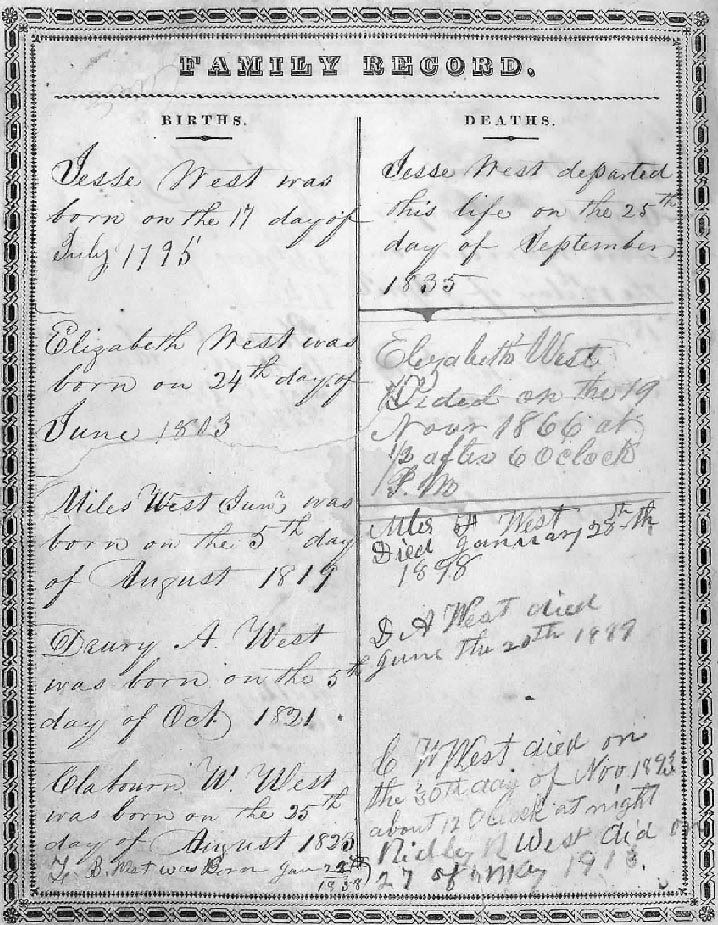 FAMILY RECORD.
BIRTHS.
Jesse West was
born on the 17 day of
July 1795
Elizabeth West was
born on 24th day of
June 1803
Miles West Junr was
born on the 5th day
of August 1819
Drury A. West
was born on the 5th
day of Oct 1821.
Clabourn W. West
was born on the 25th
day of August 1823
B. West was Born Jan
1838
DEATHS.
Jesse West departed
this life on the 25th
day of September
1835
Elizabeth West
Dided on the 19
Novr 1866 at
1/2 after 6 OClock
P.M
West
Died January 28th
1898
D A West died
June the 20th 1889
C W West died on
the 30th day of Nov 1893
about 12 OClock at night
Ridly N West did on
27 of May 1913.